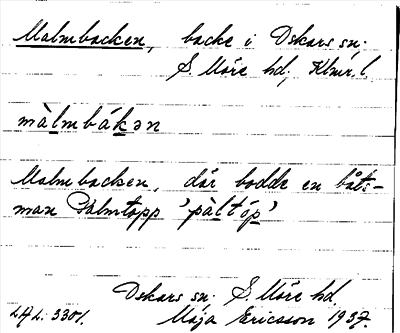 Malmbacken, backe i Oskars sn.
S. Möre hd, Klmr. l.
màlmbákən
Malmbacken, där bodde en båts-
man Palmtopp 'pàltóp'
Oskars sn. S. Möre hd.
LAL. 3301. Maja Ericsson 1937.